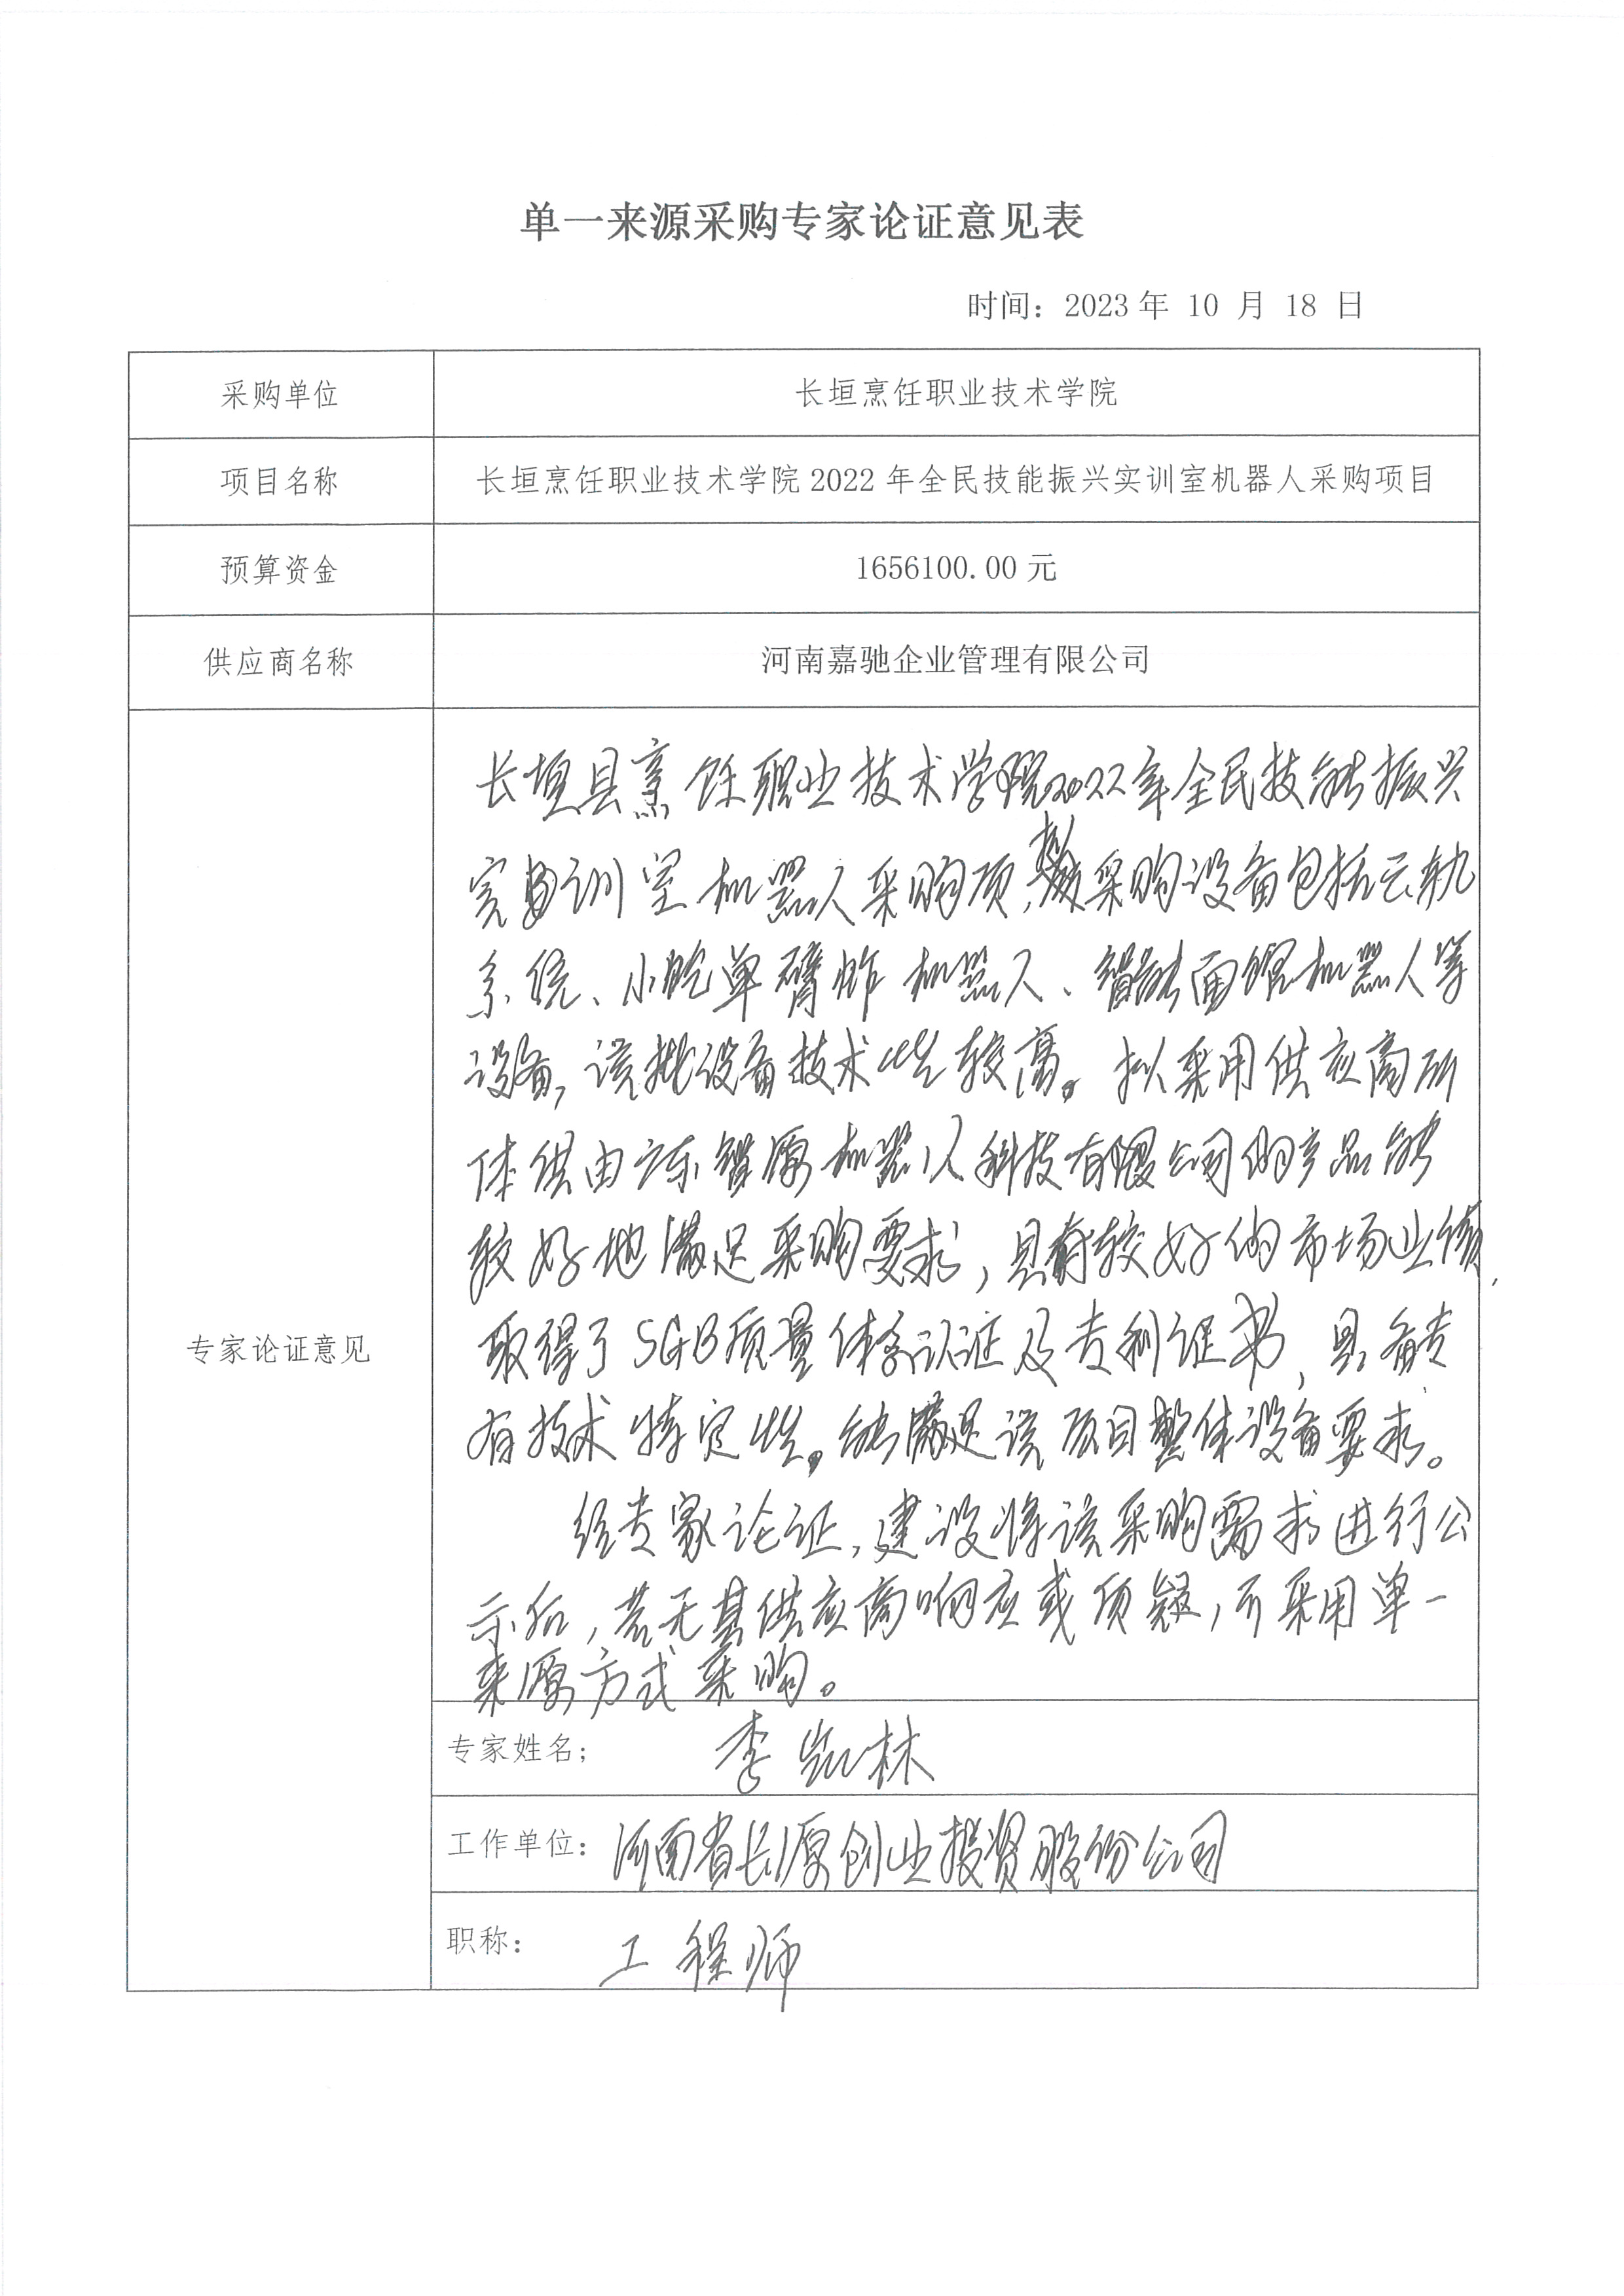 单一来源采购专家论证意见表
时间：2023年 10 月 18 日
采购单位
长垣烹饪职业技术学院
项目名称
长垣烹饪职业技术学院2022年全民技能振兴实训室机器人采购项目
预算资金
1656100.00元
供应商名称
河南嘉驰企业管理有限公司
专家论证意见
长垣县烹饪职业技术学院2022年全民技能振兴
实训室机器人采购项，拟采购设备包括云轨
系统、小炒单臂炸机器人、智能面馆机器人等
设备，该批设备技术性较高。拟采用供应商所
供由广东智源机器人科技有限公司的产品能
较好地满足采购要求，具有较好的市场业绩，
取得了SGB质量体系认证及专利证书，具备专
有技术特定性。能满足该项目整体设备要求。
经专家论证，建设将该采购需求进行公
示后，若无其供应商响应或质疑，可采用单一
来源方式采购。
专家姓名；
李凯林
工作单位：河南省长源创业投资股份公司
职称：工程师